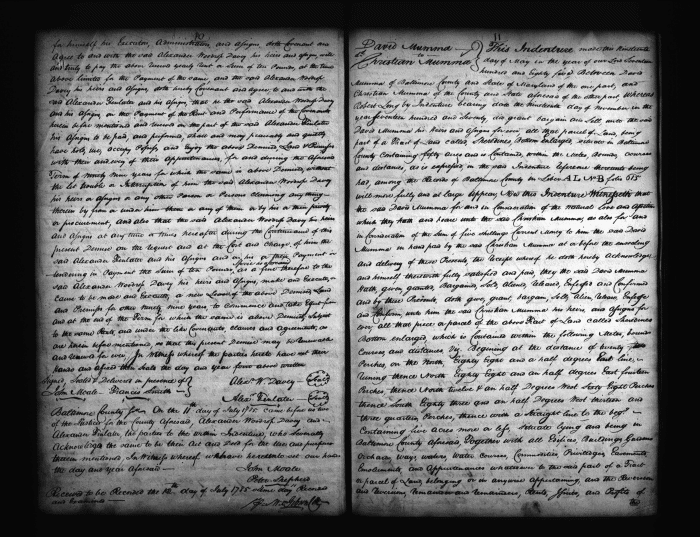 10
for himself his Executors, Administrators and Assigns, doth Covenant and
Agree to and with the said Alexander Woodrof Davey his heirs and assigns well
and truly to pay the above Annual yearly Rent or Sum of ten Pounds, at the time
above limited for the Payment of the same, and the said Alexander Woodrof
Davey his heirs and Assigns, doth hereby Covenant and agree to and with the
said Alexander Finlater and his Assigns, that he the said Alexander Woodrof Davey
and his Assigns on the Payment of the Rent and Performance of the Covenants
herein before mentioned and on the part of the said Alexander Finlater
his Assigns to be paid, and performed, shall and may peaceably and quietly
have hold, use, occupy Possess, and Enjoy the above Demised Land & Premises
with their and every of their Appurtenances, for and during the Aforesaid
Term of Ninety Nine years for which the same is above Demised, without
the let trouble or Interruption of him the said Alexander Woodrof Davey
his heirs or Assigns or any other Person or Persons claiming any thing
therein by from or under them or any of them or by his or their privity
or procurement, and also that the said Alexander Woodrof Davey his heirs
and Assigns at any time or times hereafter during the Continuance of this
present Demise on the request and at the Cost and Charge, of him the
said Alexander Finlater and his Assigns and on his or their Payment or
tendering in Payment the Sum of ten Pounds, as a fine therefor to the
said Alexander Woodrof Davey his heirs and Assigns, make and Execute, or
cause to be made and Executed, a new Lease of the above Demised Land
and Premises for other Ninety Nine years, to commence and take Effect from
and at the end of the Term for which the same is above Demised, Subject
to the same Rent, and under the like Covenants, clauses and agreements, as
are herein before mentioned, so that the present Demise may be Renewable
and renewed for ever. In Witness whereof the parties hereto have set their
hands and affixed their Seals the day and year above written
Signed, Sealed & Delivered in presence of
John Moale. Francis
Alexr. W. Davey (Seal)
Alexr. Finlater (Seal)
Baltimore County for. On the 11th day of July 1785 Came before us two
of the Justices for the County Aforesaid, Alexander Woodrof Davey and
Alexander Finlater, the parties to the within Indenture, who Severally
Acknowledge the same to be their Act and Deed for the uses and purposes
therein mentioned, In Witness whereof we have hereunto set our hands
the day and year aforesaid
John Moale
Peter Shepherd
Received to be Recorded the 12th day of July 1785 Same day Recorded
and Examined
11
David Mumma
to
Christian Mumma
This Indenture made this Nineteenth
day of May in the year of our Lord Seventeen
hundred and Eighty five Between David
Mumma of Baltimore County and State of Maryland of the one part, and
Christian Mumma of the County and State aforesaid of the other part Whereas
Robert Long by Indenture bearing date the Nineteenth day of November in the
year Seventeen hundred and Seventy, did grant bargain and Sell unto the said
David Mumma his Heirs and Assigns for ever all that parcel of Land, being
part of a Tract of Land called Shoemakers Bottom Enlarged, situate in Baltimore
County Containing fifty acres and a Contained, within the Metes Bounds, courses
and distances, as is Expressed in the said Indenture reference thereunto being
had, among the Records of Baltimore County in Liber AL No B folio 675
will more fully and at large appear, Now this Indenture Witnesseth that
the said David Mumma for and in Consideration of the natural Love and Affection
which they hath and beare unto the said Christian Mumma, as also for and
in Consideration of the Sum of five shillings Current Money to him the said David
Mumma in hand paid by the said Christian Mumma at or before the ensealing
and delivery of these Presents, the Receipt whereof he doth hereby Acknowledge
and himself therewith fully satisfied and paid, they the said David Mumma
Hath, given, granted, Bargained, Sold, aliened, released, Enfeoffed and Confirmed
and by these Presents doth give, grant, bargain, Sell, Alien, Release, Enfeoffe
and Confirm, unto him the said Christian Mumma his Heirs, and Assigns for
ever, all that piece or parcel of the above Tract of Land called Shoemakers
Bottom enlarged, which is Contained within the following Metes, bounds
Courses and distances, viz. Beginning at the distance of twenty
Perches, on the North Eighty Eight and a half degrees East line,
running thence North Eighty Eight and an half degrees East fourteen
Perches, thence North twelve & an half Degrees West Sixty Eight Perches
thence South Eighty three and an half Degrees West thirteen and
three quarters Perches, thence with a Straight line to the begg.
Containing five acres more or less, Situate lying and being in
Baltimore County aforesaid, Together with all Edifices, Buildings, Gardens
Orchards, ways, waters, Water courses, Commodities, Privileges, Easements,
Emoluments, and Appurtenances whatsoever to the said part of a Tract
or parcel of Land, belonging or in any wise appertaining, and the Reversion
and Reversions, Remainder and Remainders, Rents, Issues, and Profits of
the